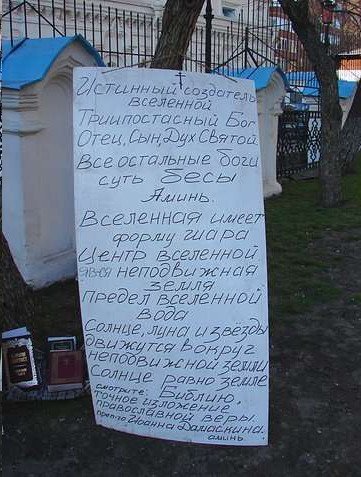 Истинный создатель
вселенной
Триипостасный Бог
Отец, Сын, Дух Святой.
Все остальные боги
суть бесы
Аминь.
Вселенная имеет
форму шара
Центр вселенной
неподвижная
земля
предел вселенной
вода
Солнце, луна и звезды
движутся вокруг
неподвижной земли
Солнце равно земле
смотрите: Библию,
точное изложение
православной веры.
Иоанна Дамаскина.
аминь.